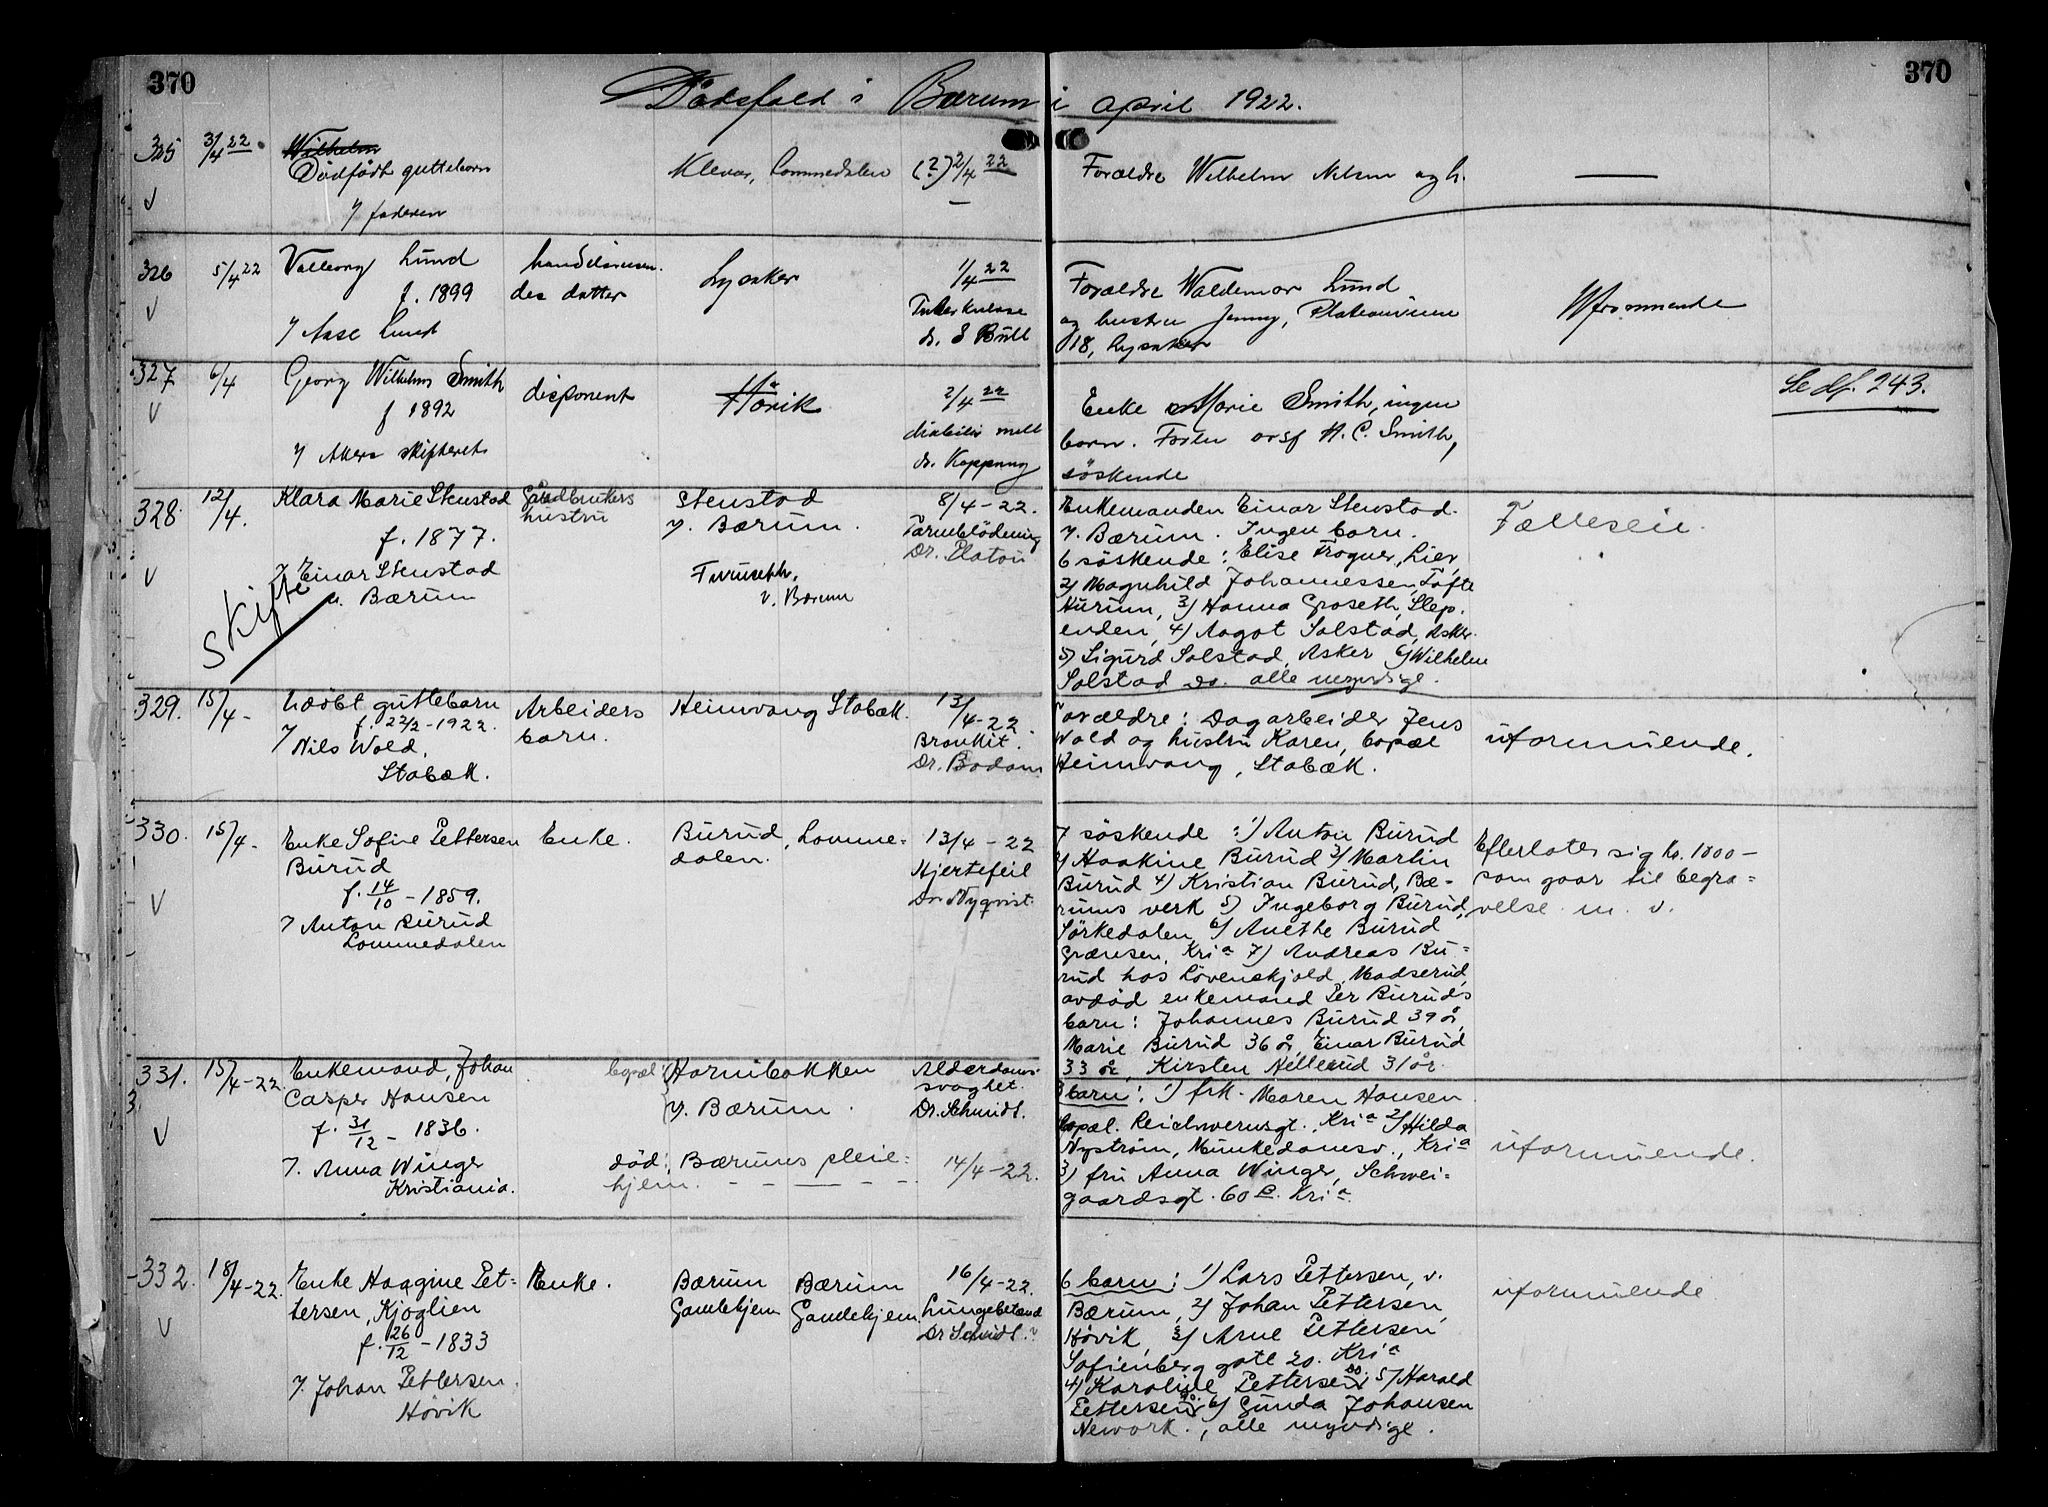 370
370
Dødsfald i Bærum i april 1922.
325
3/4 22
Wilhelm
Dødfødt guttebarn
7 faderen
Lommedalen
(?) 2/4 22
Forældre Wilhelm Nilsen og h.
326
5/4 22
Valborg Lund
f. 1899
7 Aase Lund
des datter
Lysaker
1/4 22
Tuberkulose
dr. Bull
Forældre Waldemar Lund
og hustru Jenny,
18, Lysaker
327
6/4
Georg Wilhelm Smith
f 1892
7 Akers skifteret
disponent
Høvik
2/4 22
diabetes mell
dr. Koppang
Enke Marie Smith, ingen
barn. H. C. Smith,
søskende
Se df. 243.
328
12/4.
Klara Marie Stenstad
f. 1877.
7 Einar Stenstad
v. Bærum
Skifte
Gardbrukers
hustru
Stenstad
V. Bærum.
v. Bærum
8/4-22.
Tarmblødning
Dr. Platou
Enkemanden Einar Stenstad
V. Bærum. Ingen barn.
6 søskende: Elise Frogner, Lier,
2) Magnhild Johannessen, Tofte
Hurum, 3) Hanna Groseth, Slep.
enden, 4) Aagot Solstad, Asker.
5) Sigurd Solstad, Asker 6) Wilhelm
Solstad do. alle myndige.
Fælleseie.
329.
15/4-
Udøbt guttebarn
f. 22/2-1922.
7 Nils Wold,
Stabæk.
Arbeiders
barn.
Heimvang Stabæk.
13/4-22
Bronkit.
Dr. Bodom
Forældre: Dagarbeider Jens
Wold og hustru Karen, bopæl
Heimvang, Stabæk.
uformuende.
330.
15/4-
Enke Sofie Pettersen
Burud
f. 14/10-1859.
7 Anton Burud
Lommedalen
Enke.
Burud, Lomme-
dalen.
13/4-22
Hjertefeil
Dr. Nyqvist.
7 søskende: 1) Anton Burud
2) Haakine Burud 3) Martin
Burud 4) Kristian Burud, Bæ-
rums verk 5) Ingeborg Burud,
Sørkedalen, 6) Anethe Burud
Grænsen, Kria 7) Andreas Bu-
rud hos Løvenskjold, Madserud,
avdød enkemand Per Buruds
barn: Johannes Burud 39 år,
Marie Burud 36 år, Einar Burud
33 år, Kirsten Hillerud 31 år.
Efterlater sig kr. 1000-
som gaar til begra-
velse m. v.
331.
15/4-22.
Enkemand, Johan
Casper Hansen
f. 31/12-1836.
7. Anna Winger
Kristiania.
bopæl:
Hornibakken
V. Bærum.
død: Bærums pleie-
hjem.
Alderdoms-
svaghet.
Dr. Schmidt.
14/4-22.
3 barn: 1) frk. Maren Hansen
bopæl. Reichweinsgt., Kria 2) Hilda
Nystrøm, Munkedamsv., Kria
3) fru Anna Winger, Schwei-
gaardsgt. 60 Kria.
uformuende.
332.
18/4-22.
Enke Haagine Pet-
tersen, Kjøglien
f. 26/12-1833
7. Johan Pettersen.
Høvik
Enke.
Bærum
Gamlehjem
Bærum
Gamlehjem.
16/4-22.
Lungebetænd
Dr Schmidt.
6 barn: 1) Lars Pettersen, v.
Bærum, 2) Johan Pettersen,
Høvik, 3) Arne Pettersen,
Sofienberg gate 20. Kria
4) Karoline Pettersen do. 5) Harald
Pettersen do. 6) Gunda Johansen
Nework., alle myndige.
uformuende.